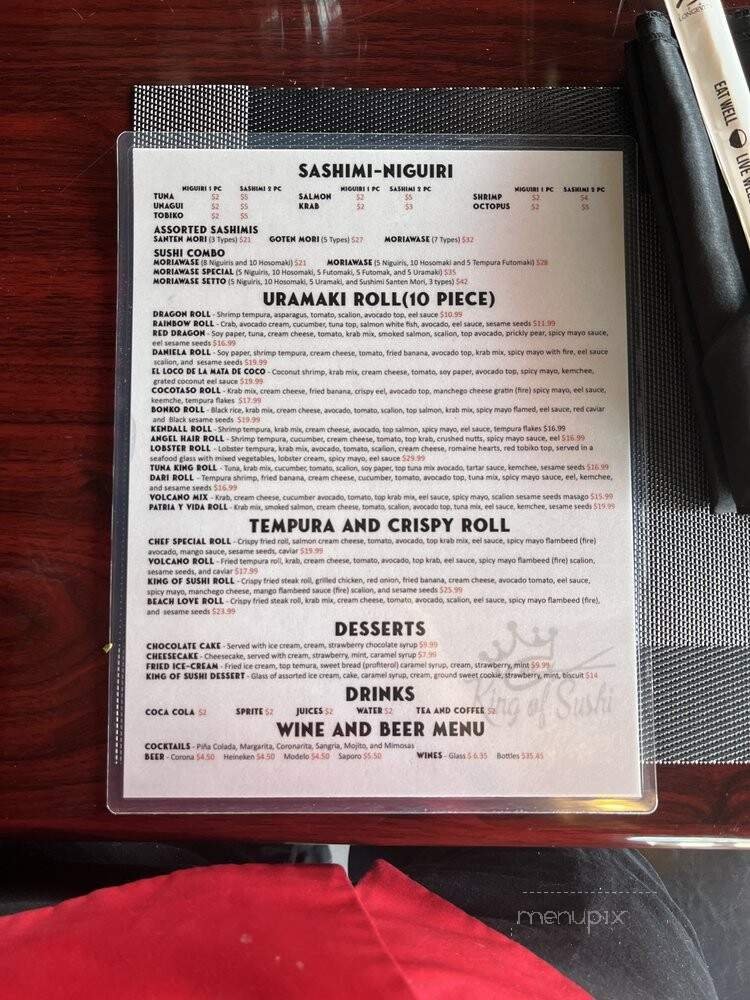 EAT WELL LIVE WELL
SASHIMI-NIGUIRI
NIGUIRI 1 PC SASHIMI 2 PC NIGUIRI 1 PC SASHIMI 2 PC NIGUIRI 1 PC SASHIMI 2 PC
TUNA $2 $5 SALMON $2 $5 SHRIMP $2 $4
UNAGUI $2 $5 KRAB $2 $3 OCTOPUS $2 $5
TOBIKO $2 $5
ASSORTED SASHIMIS
SANTEN MORI (3 Types) $21 GOTEN MORI (5 Types) $27 MORIAWASE (7 Types) $32
SUSHI COMBO
MORIAWASE (8 Niguiris and 10 Hosomaki) $21 MORIAWASE (5 Niguiris, 10 Hosomaki and 5 Tempura Futomaki) $28
MORIAWASE SPECIAL (5 Niguiris, 10 Hosomaki, 5 Futomaki, 5 Futomak, and 5 Uramaki) $35
MORIAWASE SETTO (5 Niguiris, 10 Hosomaki, 5 Uramaki, and Sushimi Santen Mori, 3 types) $42
URAMAKI ROLL(10 PIECE)
DRAGON ROLL - Shrimp tempura, asparagus, tomato, scalion, avocado top, eel sauce $10.99
RAINBOW ROLL - Crab, avocado cream, cucumber, tuna top, salmon white fish, avocado, eel sauce, sesame seeds $11.99
RED DRAGON - Soy paper, tuna, cream cheese, tomato, krab mix, smoked salmon, scalion, top avocado, prickly pear, spicy mayo sauce,
eel sesame seeds $16.99
DANIELA ROLL - Soy paper, shrimp tempura, cream cheese, tomato, fried banana, avocado top, krab mix, spicy mayo with fire, eel sauce
scalion, and sesame seeds $19.99
EL LOCO DE LA MATA DE COCO - Coconut shrimp, krab mix, cream cheese, tomato, soy paper, avocado top, spicy mayo, kemchee,
grated coconut eel sauce $19.99
COCOTASO ROLL - Krab mix, cream cheese, fried banana, crispy eel, avocado top, manchego cheese gratin (fire) spicy mayo, eel sauce,
keemche, tempura flakes $17.99
BONKO ROLL - Black rice, krab mix, cream cheese, avocado, tomato, scalion, top salmon, krab mix, spicy mayo flamed, eel sauce, red caviar
and Black sesame seeds $19.99
KENDALL ROLL - Shrimp tempura, krab mix, cream cheese, avocado, top salmon, spicy mayo, eel sauce, tempura flakes $16.99
ANGEL HAIR ROLL - Shrimp tempura, cucumber, cream cheese, tomato, top krab, crushed nutts, spicy mayo sauce, eel $16.99
LOBSTER ROLL - Lobster tempura, krab mix, avocado, tomato, scalion, cream cheese, romaine hearts, red tobiko top, served in a
seafood glass with mixed vegetables, lobster cream, spicy mayo, eel sauce $29.99
TUNA KING ROLL - Tuna, krab mix, cucumber, tomato, scalion, soy paper, top tuna mix avocado, tartar sauce, kemchee, sesame seeds $16.99
DARI ROLL - Tempura shrimp, fried banana, cream cheese, cucumber, tomato, avocado top, tuna mix, spicy mayo sauce, eel, kemchee,
and sesame seeds $16.99
VOLCANO MIX - Krab, cream cheese, cucumber avocado, tomato, top krab mix, eel sauce, spicy mayo, scalion sesame seeds masago $15.99
PATRIA Y VIDA ROLL - Krab mix, smoked salmon, cream cheese, tomato, scalion, avocado top, tuna mix, eel sauce, kemchee, sesame seeds $19.99
TEMPURA AND CRISPY ROLL
CHEF SPECIAL ROLL - Crispy fried roll, salmon cream cheese, tomato, avocado, top krab mix, eel sauce, spicy mayo flambeed (fire)
avocado, mango sauce, sesame seeds, caviar $19.99
VOLCANO ROLL - Fried tempura roll, krab, cream cheese, tomato, avocado, top krab, eel sauce, spicy mayo flambeed (fire) scalion,
sesame seeds, and caviar $17.99
KING OF SUSHI ROLL - Crispy fried steak roll, grilled chicken, red onion, fried banana, cream cheese, avocado tomato, eel sauce,
spicy mayo, manchego cheese, mango flambeed sauce (fire) scalion, and sesame seeds $25.99
BEACH LOVE ROLL - Crispy fried steak roll, krab mix, cream cheese, tomato, avocado, scalion, eel sauce, spicy mayo flambeed (fire),
and sesame seeds $23.99
DESSERTS
CHOCOLATE CAKE - Served with ice cream, cream, strawberry chocolate syrup $9.99
CHEESECAKE - Cheesecake, served with cream, strawberry, mint, caramel syrup $7.99
FRIED ICE-CREAM - Fried ice cream, top temura, sweet bread (profiterol) caramel syrup, cream, strawberry, mint $9.99
KING OF SUSHI DESSERT - Glass of assorted ice cream, cake, caramel syrup, cream, ground sweet cookie, strawberry, mint, biscuit $14
King of Sushi
DRINKS
COCA COLA $2 SPRITE $2 JUICES $2 WATER $2 TEA AND COFFEE $2
WINE AND BEER MENU
COCKTAILS - Piña Colada, Margarita, Coronarita, Sangria, Mojito, and Mimosas
BEER - Corona $4.50 Heineken $4.50 Modelo $4.50 Saporo $5.50 WINES - Glass $ 6.35 Bottles $35.45
menupix